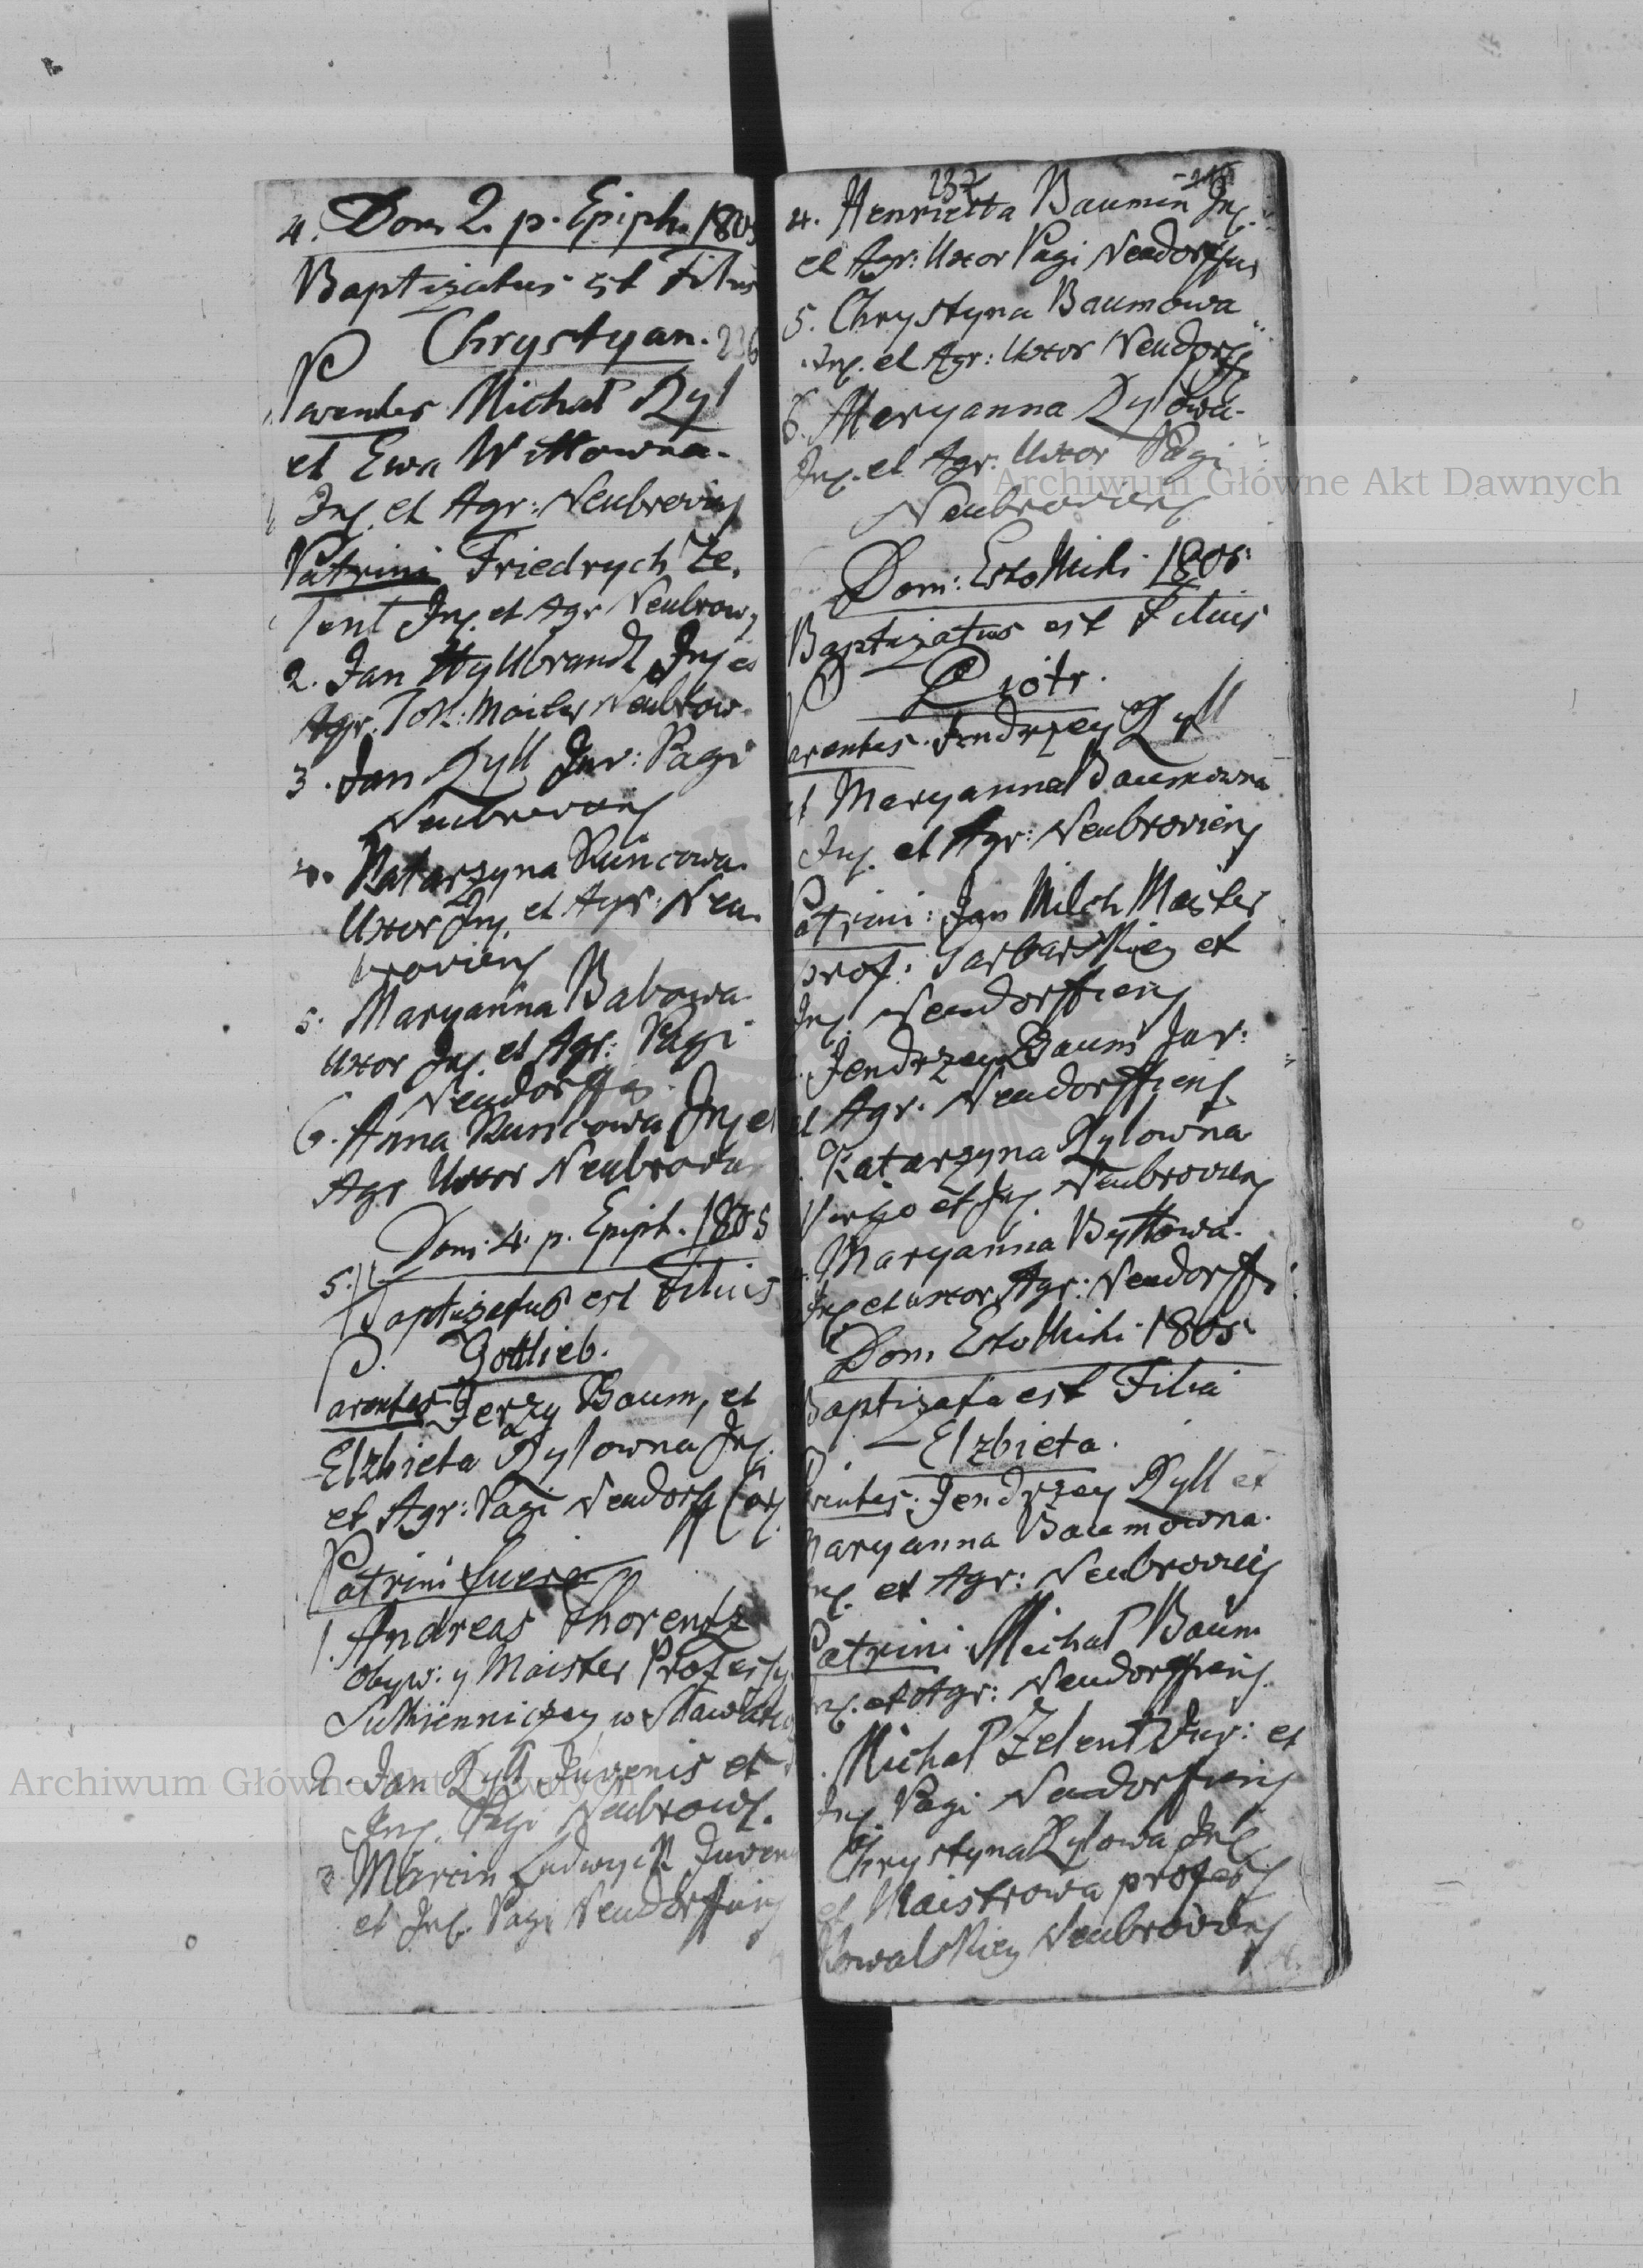 4. Dom 2. p. Epiph. 1805
Baptizatus est Filius
Chrystyan. 236
Parentes Michał Ryl
et Ewa Wittowna.
Inq. et Agr: Neubroviens
Patrini Friedrych Ze,
lent Inq. et Agr Neubrow,
2. Jan Hyllbrandt Inq et
Agr. Maister Neubrow.
3. Jan Ryll Juv: Pagi
Neubroviens
4. Katarzyna Kuncowa
Uxor Inq. et Agr: Neu,
broviens
5. Maryanna Babowa
uxor Inq. et Agr: Pagi
Neudorff
6. Anna Kuncowa Inq et
Agr Uxor Neubrovien
Dom: 4. p. Epiph. 1805
5. Baptizatus est Filius
Gottlieb.
Parentes Jerzy Baum, et
Elzbieta Rylowna Inq.
et Agr: Pagi Neudorff
Patrini fuere
1. Andreas Thorentz
Obyw: y Maister Profesyi
Sukienniczey w Sławat
2. Jan Ryll Juvenis et
Inq. Pagi Neubrow.
3. Marcin Ludwyck Juvenis
et Inq. Pagi Neudorffiens
237
4. Henrietta Baumin Inq.
et Agr: Uxor Pagi Neudorffiens
5. Chrystyna Baumowa
Inq. et Agr: Uxor Neudorff
6. Maryanna Rylowa
Inq. et Agr: Uxor Pagi
Neubroviens
Dom: Esto Mihi 1805.
Baptizatus est Filius
Piotr.
Parentes. Jendrzey Ryll
et Maryanna Baumowna
Inq. et Agr: Neubroviens
Patrini: Jan Milch Maister
prof: Garbarskiey et
Inq. Neudorffiens
2. Jendrzey Baum Juv:
et Agr: Neudorffiens
Katarzyna Rylowna
Virgo et Inq. Neubroviens
Maryanna Byttowa.
Inq. et uxor Agr: Neudorff
Dom. Esto Mihi 1805
Baptizata est Filia
Elzbieta.
Parentes. Jendrzey Ryll et
Maryanna Baumowna.
Inq. et Agr: Neubroviens
Patrini Michał Baum
Inq. et Agr: Neudorffiens.
Michał Zelent Juv: et
Inq. Pagi Neudorffiens
Chrystyna Rylowa Inq.
et Maistrowa profes
Kowalskiey Neubroviens
Archiwum Główne Akt Dawnych
Archiwum Główne Akt Dawnych